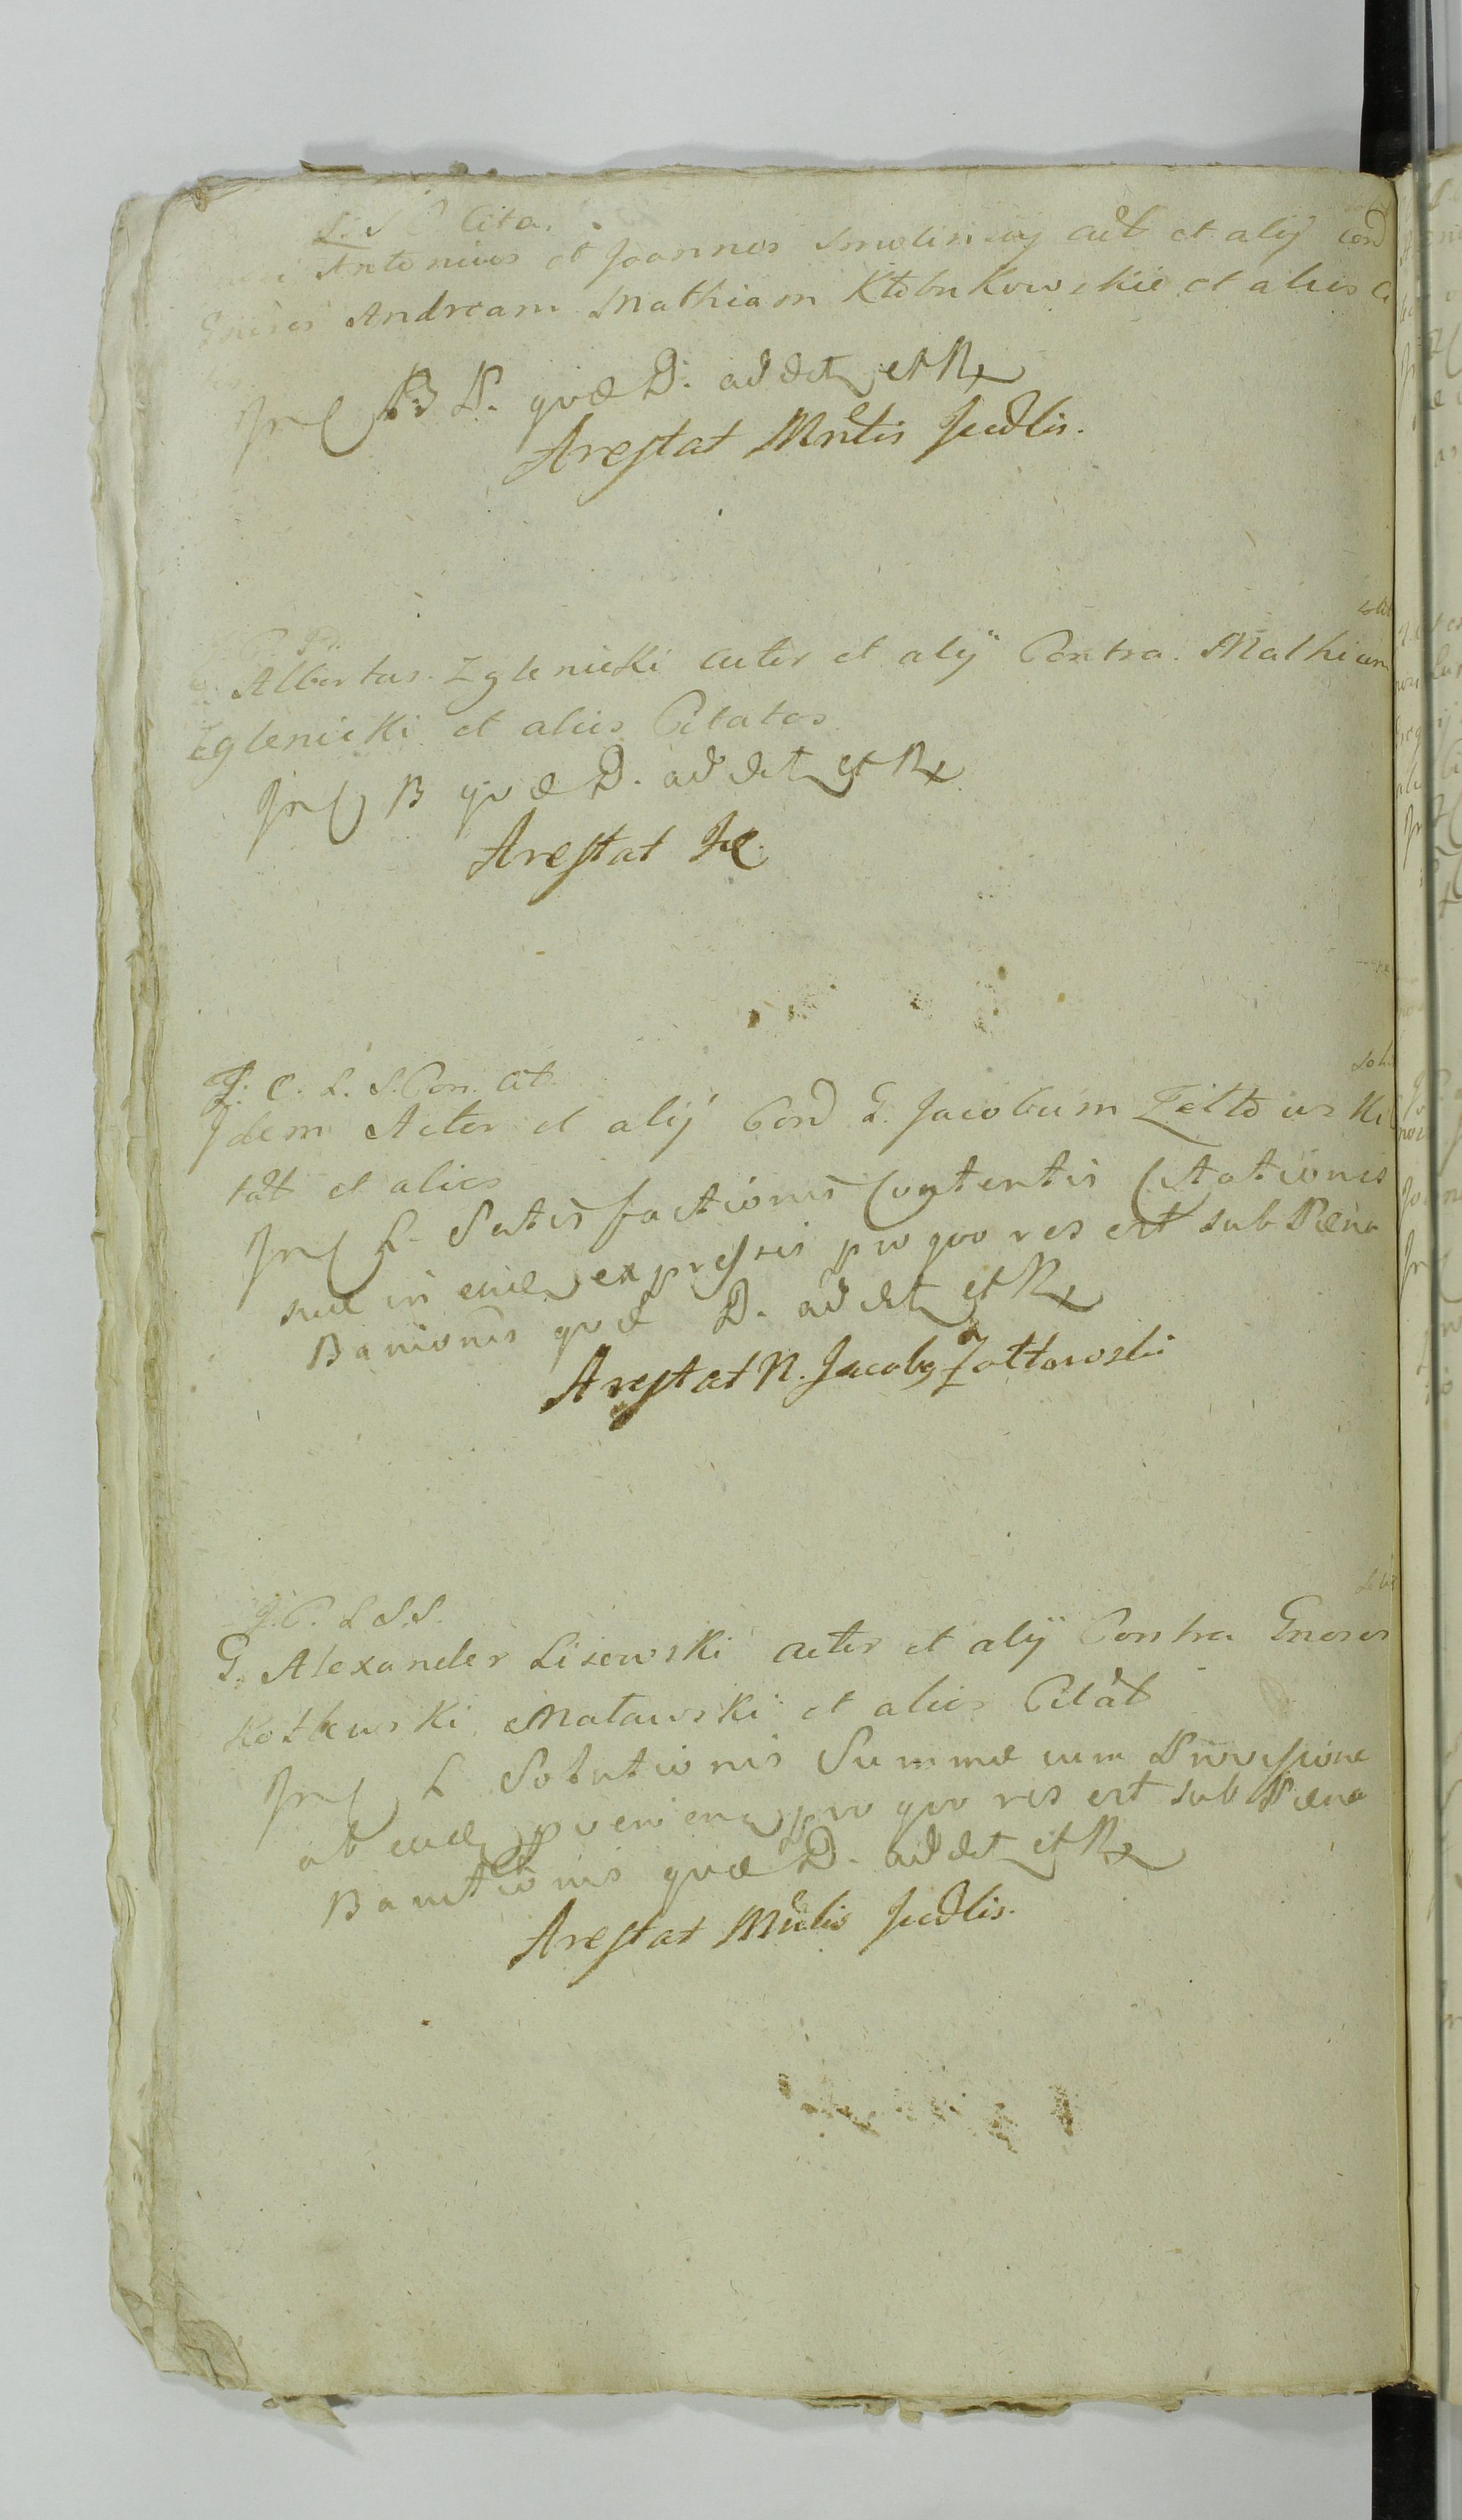 L. S. C Cita.
Antonius et Joannes Smolinscy act et alij cond
Gnesos Andream Mathiam Kłobukowskie et alios
In C B P. quæ D. ad dct et Rx
Arestat Mntis Judlis.
solvit
Albertus Zglenicki acter et alij Contra Mathiam
Zglenicki et alios Citatos
In C B quæ D. ad dct et Rx
Arestat Je
J. C. L. S. Con. cit.
Idem Actor et alij Cond G. Jacobum Zołtowski
tat et alios
In C L. Satisfactionis Contentis Citationis
suæ in eade expressis pro quo res est sub Pæna
Banionis quæ D. ad dct et Rx
Arestat N. Jacobg Zołtowski
J. C. L S. S.
G. Alexander Lisewski acter et alij Contra Gnosos
Kotkowski Małowski et alios Citat
In C L Solutionis Summæ cum Provisione
ab eade proveniens pro quo res est sub Pæna
Banitionis quæ D. ad dct et Rx
Arestat Mntis Judlis.